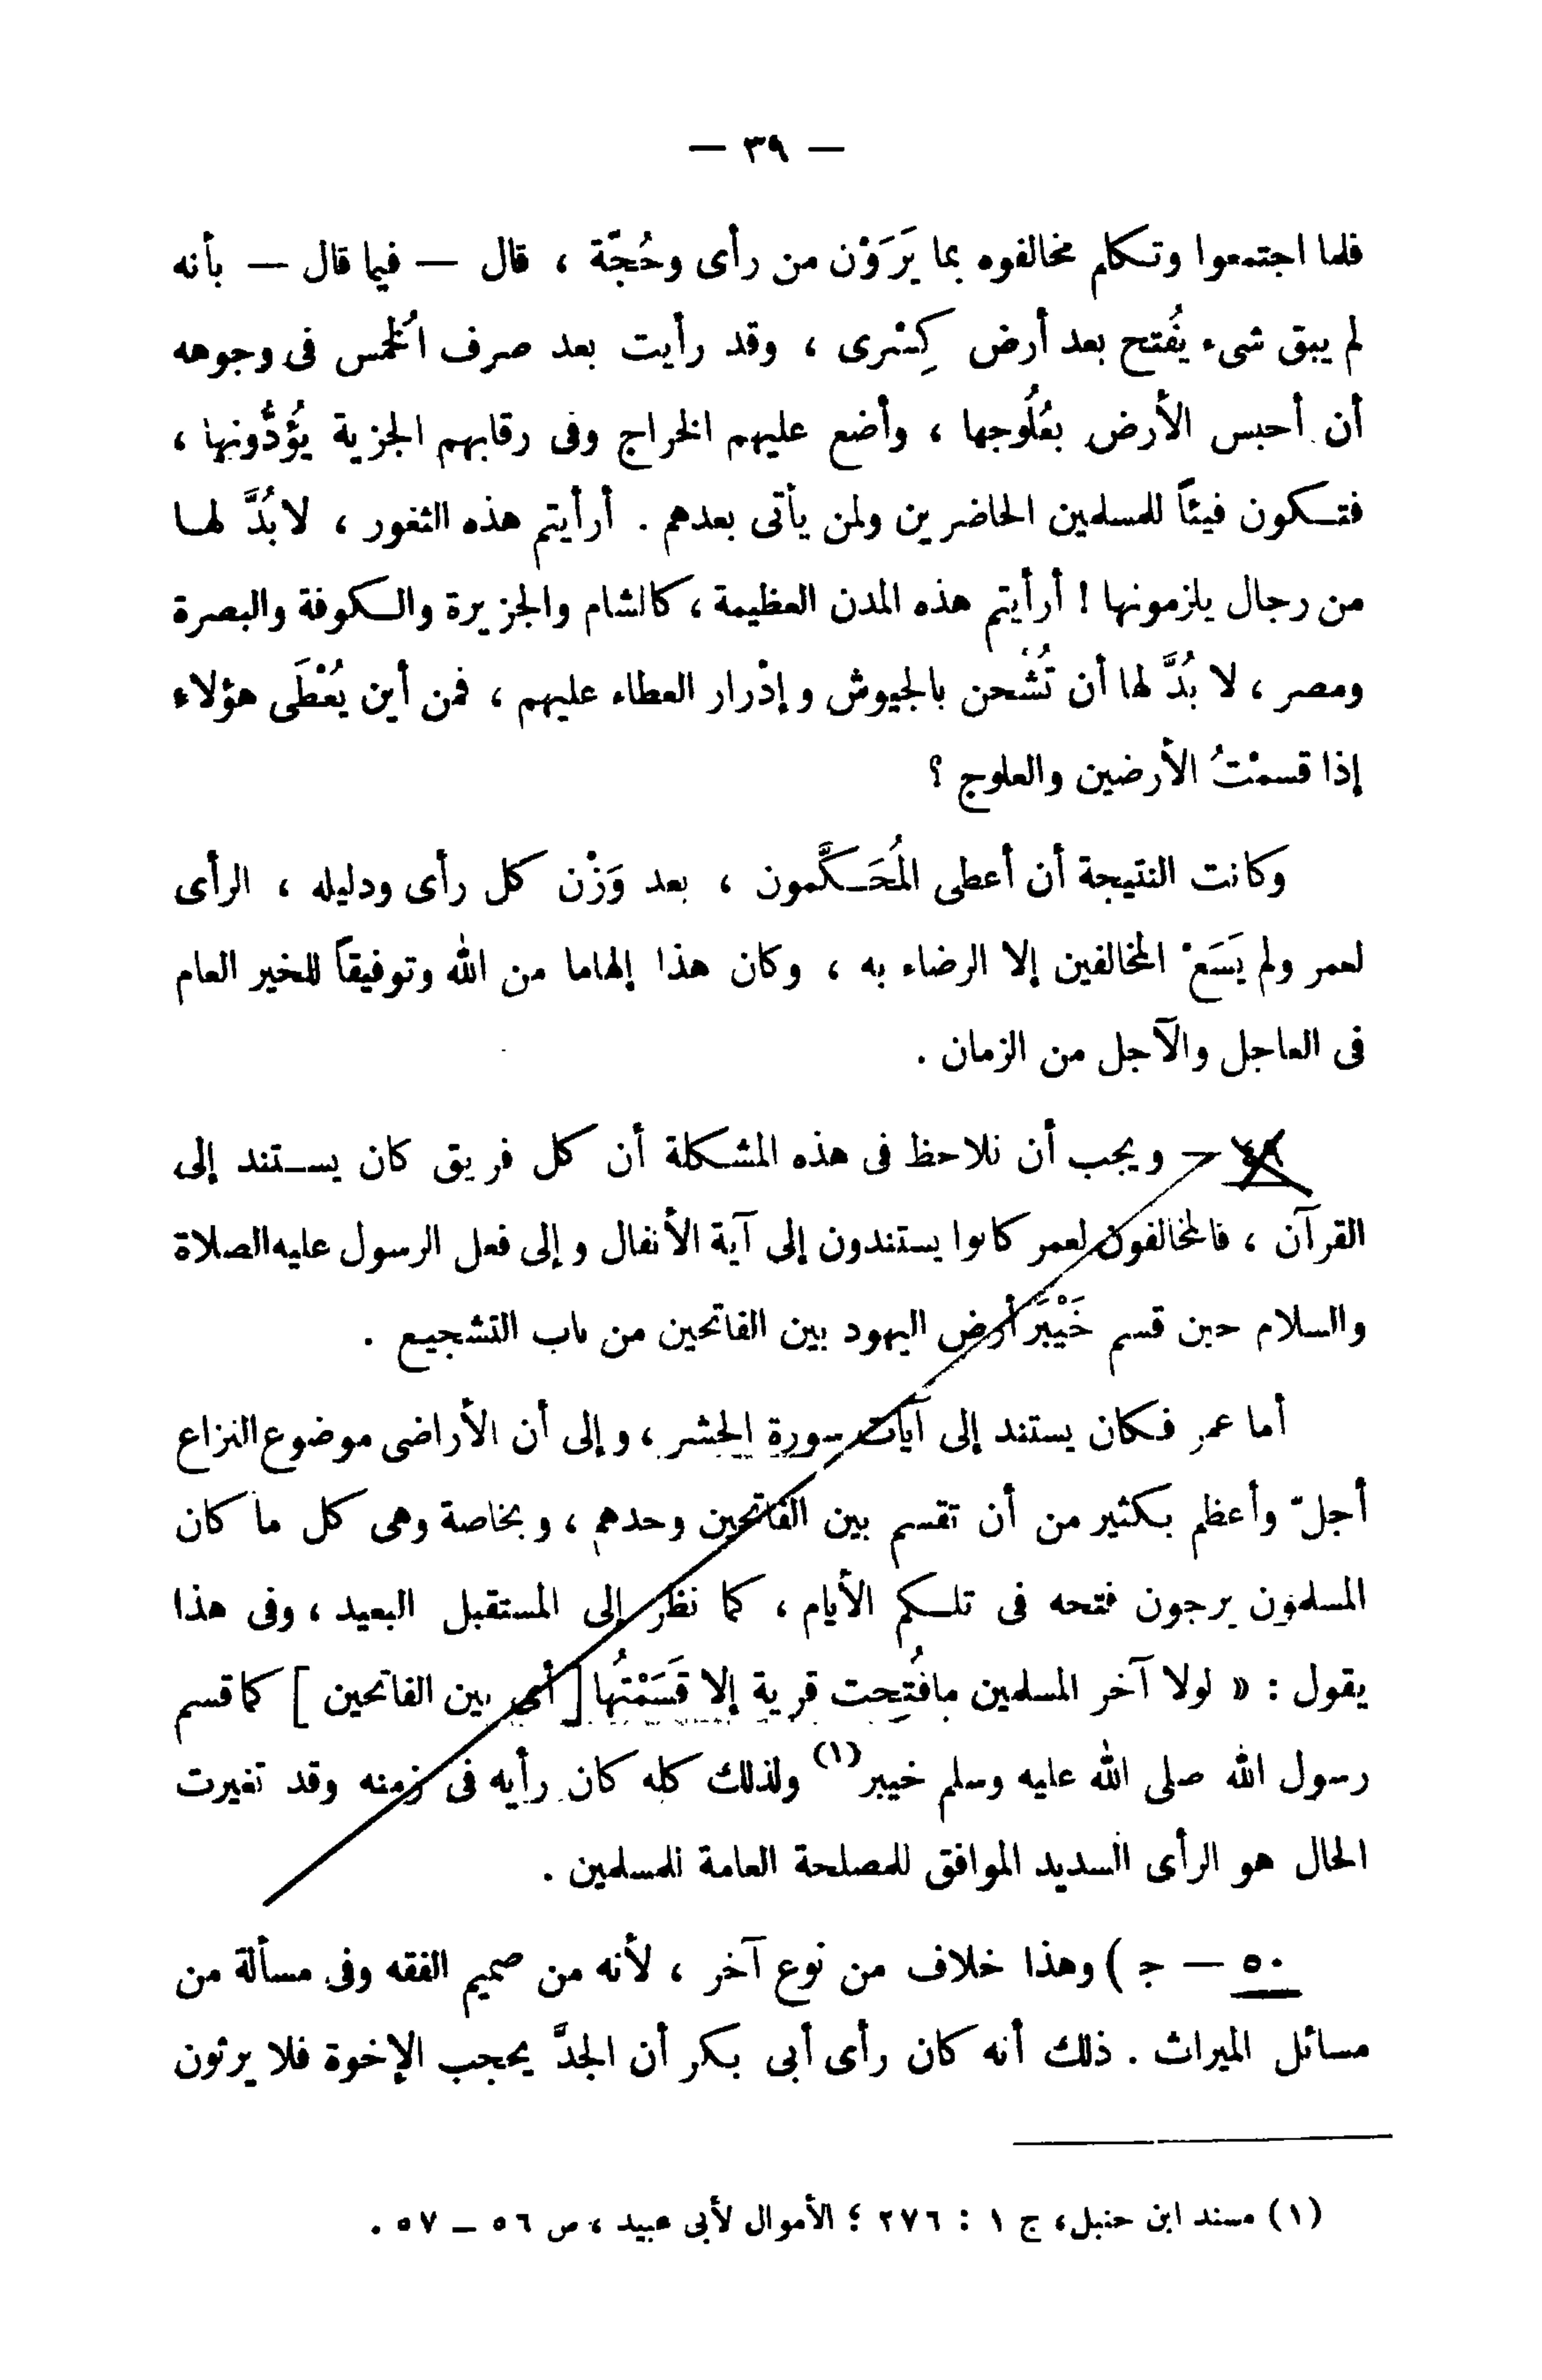 — ٣٩ —
فلما اجتمعوا وتكلم مخالفوه بما يَرَوْن من رأى وحُجّة ، قال — فيما قال — بأنه
لم يبق شىء يُفتح بعد أرض كِسْرى ، وقد رأيت بعد صرف الُخمس فى وجوهه
أن أحبس الأرض بعُلُوجها ، وأضع عليهم الخراج وفى رقابهم الجزية يُؤدُّونها ،
فتكون فيئاً للمسلمين الحاضرين ولمن يأتى بعدهم . أرأيتم هذه الثغور ، لابُدَّ لها
من رجال يلزمونها ! أرأيتم هذه المدن العظيمة ، كالشام والجزيرة والكوفة والبصرة
ومصر ، لا بُدَّ لها أن تُشْحن بالجيوش وإدْرار العطاء عليهم ، فمن أين يُعْطَى هؤلاء
إذا قسمْتُ الأرضين والعلوج ؟
وكانت النتيجة أن أعطى المُحَكَّمون ، بعد وَزْن كل رأى ودليله ، الرأى
لعمر ولم يَسَعْ المخالفين إلا الرضاء به ، وكان هذا إلهاما من الله وتوفيقاً للخير العام
فى العاجل والآجل من الزمان .
٤٩ — ويجب أن نلاحظ فى هذه المشكلة أن كل فريق كان يستند إلى
القرآن ، فالمخالفون لعمر كانوا يستندون إلى آية الأنفال وإلى فعل الرسول عليه الصلاة
والسلام حين قسم خَيْبَر أرض اليهود بين الفاتحين من باب التشجيع .
أما عمر فكان يستند إلى آيات سورة الحشر ، وإلى أن الأراضى موضوع النزاع
أجلّ وأعظم بكثير من أن تقسم بين الفاتحين وحدهم ، وبخاصة وهى كل ما كان
المسلمون يرجون فتحه فى تلكم الأيام ، كما نظر إلى المستقبل البعيد ، وفى هذا
يقول : « لولا آخر المسلمين مافُتِحت قرية إلا قَسَمْتُها [ أى بين الفاتحين ] كما قسم
رسول الله صلى الله عليه وسلم خيبر (١) ولذلك كله كان رأيه فى زمنه وقد تغيرت
الحال هو الرأى السديد الموافق للمصلحة العامة للمسلمين .
٥٠ — ج ) وهذا خلاف من نوع آخر ، لأنه من صميم الفقه وفى مسألة من
مسائل الميراث . ذلك أنه كان رأى أبى بكر أن الجدَّ يحجب الإخوة فلا يرثون
(١) مسند ابن حنبل، ج ١ : ٢٧٦ ؛ الأموال لأبى عبيد ، ص ٥٦ — ٥٧ .